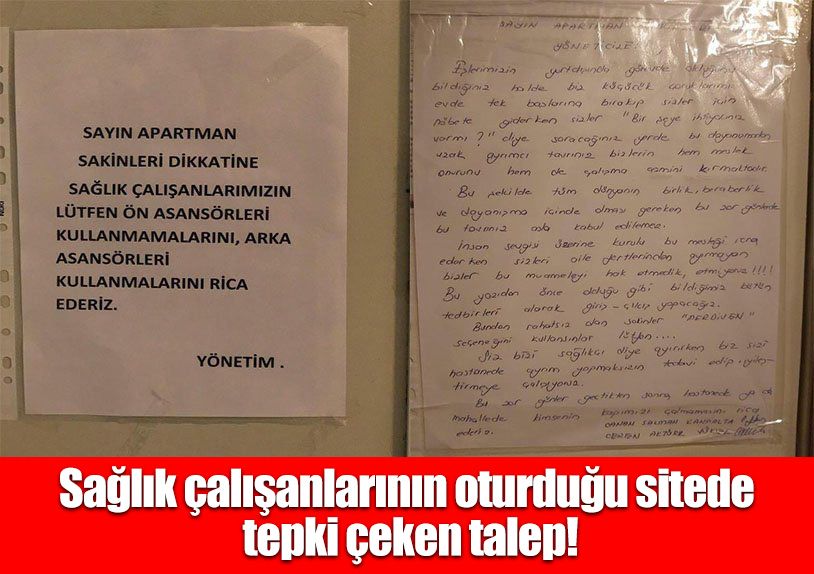 SAYIN APARTMAN
SAKİNLERİ DİKKATİNE
SAĞLIK ÇALIŞANLARIMIZIN
LÜTFEN ÖN ASANSÖRLERİ
KULLANMAMALARINI, ARKA
ASANSÖRLERİ
KULLANMALARINI RİCA
EDERİZ.
YÖNETİM .
SAYIN APARTMAN
YÖNETİCİLE
İşlerimizin yurtdışında görevde olduğunu
bildiğiniz halde biz küçücük çocuklarımı
evde tek başlarına bırakıp sizler için
nöbete giderken sizler "Bir şeye ihtiyacınız
varmı?" diye soracağınız yerde bu dayanışmadan
uzak ayrımcı tavrınız bizlerin hem meslek
onurunu hem de çalışma azmini kırmaktadır.
Bu şekilde tüm dünyanın birlik, beraberlik
ve dayanışma içinde olması gereken bu zor günlerde
bu tavrınız asla kabul edilemez.
İnsan sevgisi üzerine kurulu bu mesleği icra
ederken sizleri aile fertlerinden ayırmayan
bizler bu muameleyi hak etmedik, etmiyoruz!!!!
Bu yazıdan önce olduğu gibi bildiğimiz bütün
tedbirleri alarak giriş-çıkış yapacağız.
Bundan rahatsız olan sakinler "MERDİVEN"
seçeneğini kullansınlar lütfen....
Siz bizi sağlıkçı diye ayırırken biz sizi
hastanede ayrım yapmaksızın tedavi edip, iyileş-
tirmeye çalışıyoruz.
Bu zor günler geçtikten sonra hastanede ya da
mahallede kimsenin kapımızı çalmamasını rica
ederiz. CANAN SALMAN KANPALTA
CEREN AKTÜRK
Sağlık çalışanlarının oturduğu sitede
tepki çeken talep!